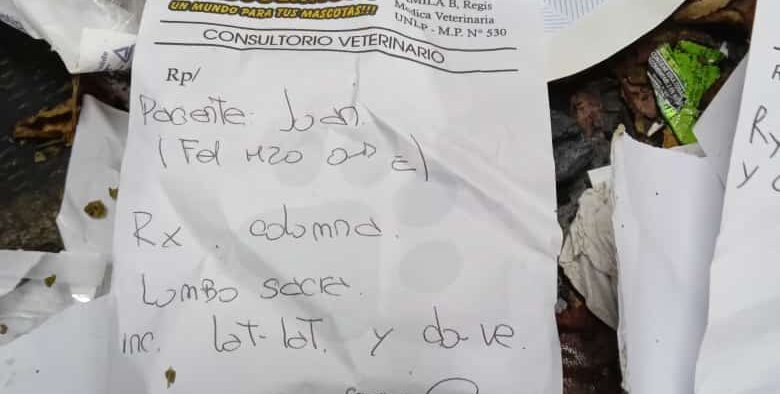 UN MUNDO PARA TUS MASCOTAS!!!
B. Regis
Médica Veterinaria
UNLP - M.P. N° 530
CONSULTORIO VETERINARIO
Rp/
Paciente: Juan
(Fel H20
Rx. columna.
Lumbo sacra.
inc. Lat-laT. y do-ve.